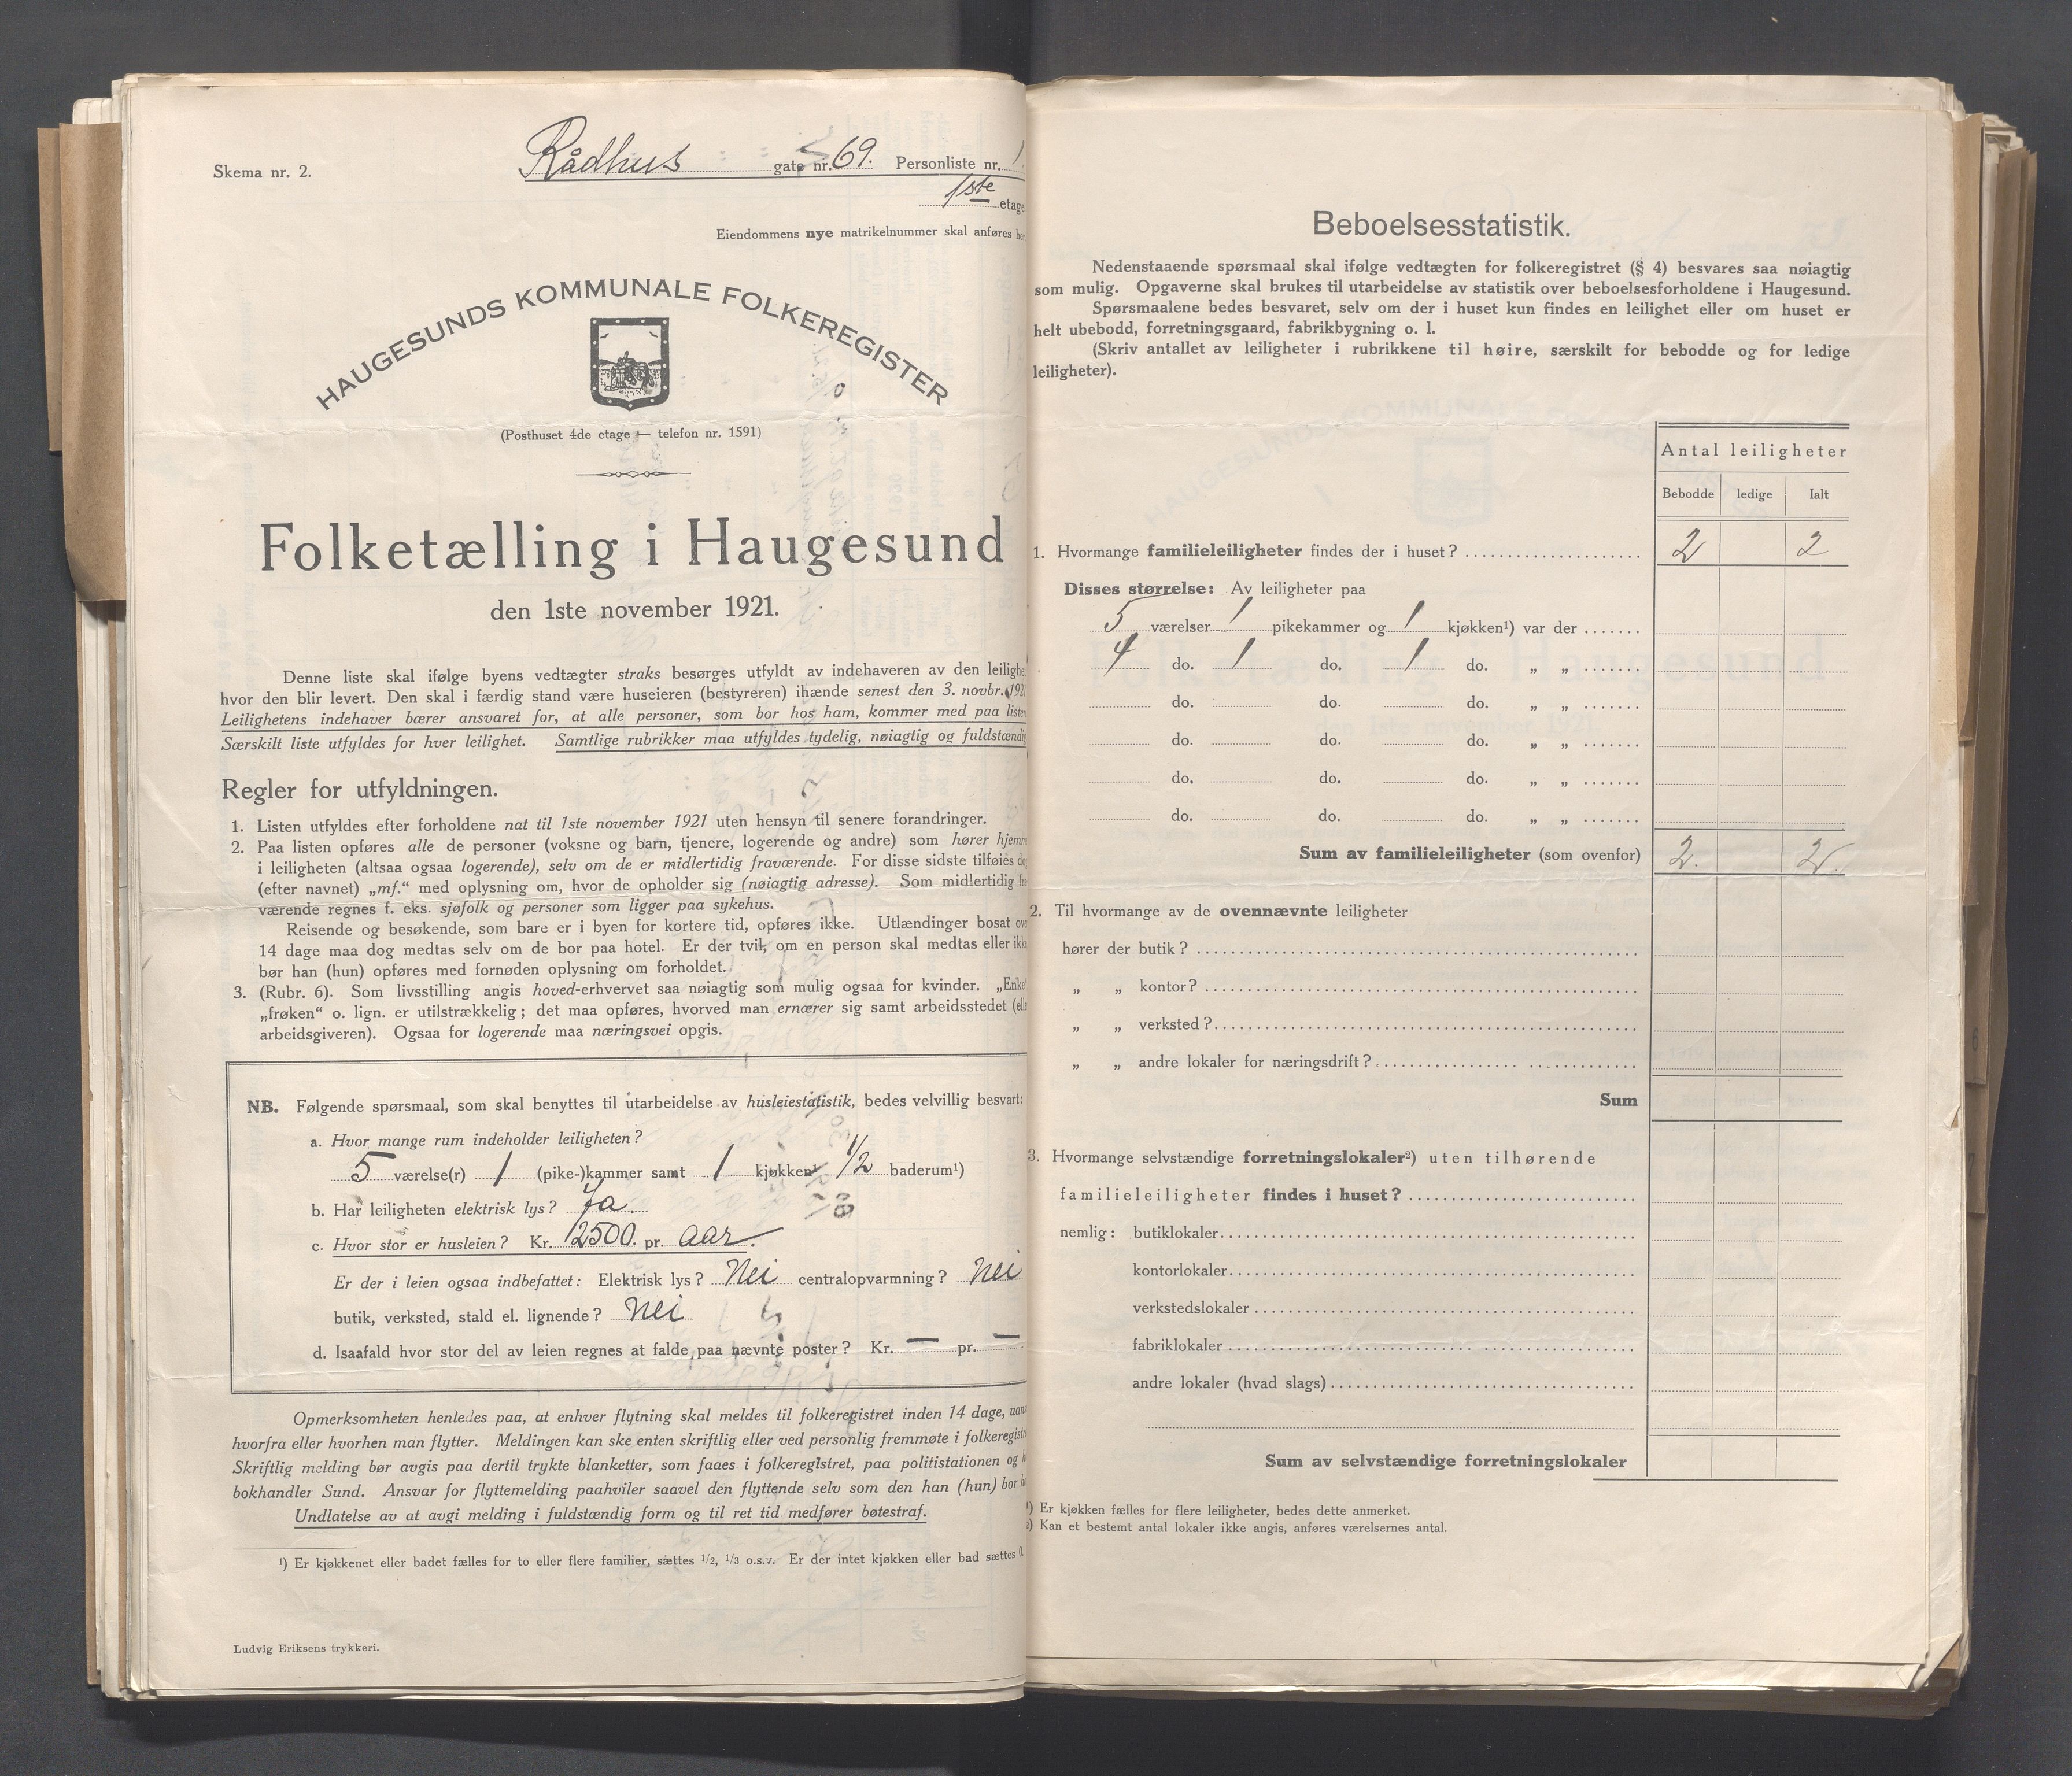 Skema nr. 2.
Rådhus gate nr. 69. Personliste nr. 1.
1ste etage
Eiendommens nye matrikelnummer skal anføres her
HAUGESUNDS KOMMUNALE FOLKEREGISTER
(Posthuset 4de etage — telefon nr. 1591)
Folketælling i Haugesund
den 1ste november 1921.
Denne liste skal ifølge byens vedtægter straks besørges utfyldt av indehaveren av den leilighet
hvor den blir levert. Den skal i færdig stand være huseieren (bestyreren) ihænde senest den 3. novbr. 1921
Leilighetens indehaver bærer ansvaret for, at alle personer, som bor hos ham, kommer med paa listen
Særskilt liste utfyldes for hver leilighet. Samtlige rubrikker maa utfyldes tydelig, nøiagtig og fuldstændig
Regler for utfyldningen.
1. Listen utfyldes efter forholdene nat til 1ste november 1921 uten hensyn til senere forandringer.
2. Paa listen opføres alle de personer (voksne og barn, tjenere, logerende og andre) som hører hjemme
i leiligheten (altsaa ogsaa logerende), selv om de er midlertidig fraværende. For disse sidste tilføies da
(efter navnet) „mf.“ med oplysning om, hvor de opholder sig (nøiagtig adresse). Som midlertidig fra
værende regnes f. eks. sjøfolk og personer som ligger paa sykehus.
Reisende og besøkende, som bare er i byen for kortere tid, opføres ikke. Utlændinger bosat over
14 dage maa dog medtas selv om de bor paa hotel. Er der tvil, om en person skal medtas eller ikke
bør han (hun) opføres med fornøden oplysning om forholdet.
3. (Rubr. 6). Som livsstilling angis hoved-erhvervet saa nøiagtig som mulig ogsaa for kvinder. „Enke“
„frøken“ o. lign. er utilstrækkelig; det maa opføres, hvorved man ernærer sig samt arbeidsstedet (eller
arbeidsgiveren). Ogsaa for logerende maa næringsvei opgis.
NB. Følgende spørsmaal, som skal benyttes til utarbeidelse av husleiestatistik, bedes velvillig besvart:
a. Hvor mange rum indeholder leiligheten?
5 værelse(r) 1 (pike-)kammer samt 1 kjøkken¹ 1/2 baderum¹)
b. Har leiligheten elektrisk lys? Ja.
c. Hvor stor er husleien? Kr. 2500. pr. aar.
Er der i leien ogsaa indbefattet: Elektrisk lys? Nei centralopvarmning? Nei
butik, verksted, stald el. lignende? Nei
d. Isaafald hvor stor del av leien regnes at falde paa nævnte poster? Kr. — pr. —
Opmerksomheten henledes paa, at enhver flytning skal meldes til folkeregistret inden 14 dage, uanset
hvorfra eller hvorhen man flytter. Meldingen kan ske enten skriftlig eller ved personlig fremmøte i folkeregistret
Skriftlig melding bør avgis paa dertil trykte blanketter, som faaes i folkeregistret, paa politistationen og h
bokhandler Sund. Ansvar for flyttemelding paahviler saavel den flyttende selv som den han (hun) bor hos
Undlatelse av at avgi melding i fuldstændig form og til ret tid medfører bøtestraf.
¹) Er kjøkkenet eller badet fælles for to eller flere familier, sættes 1/2, 1/3 o.s.v. Er der intet kjøkken eller bad sættes 0.
Ludvig Eriksens trykkeri.
Beboelsesstatistik.
Nedenstaaende spørsmaal skal ifølge vedtægten for folkeregistret (§ 4) besvares saa nøiagtig
som mulig. Opgaverne skal brukes til utarbeidelse av statistik over beboelsesforholdene i Haugesund.
Spørsmaalene bedes besvaret, selv om der i huset kun findes en leilighet eller om huset er
helt ubebodd, forretningsgaard, fabrikbygning o. l.
(Skriv antallet av leiligheter i rubrikkene til høire, særskilt for bebodde og for ledige
leiligheter).
Antal leiligheter
Bebodde ledige Ialt
1. Hvormange familieleiligheter findes der i huset? 2 2
Disses størrelse: Av leiligheter paa
5 værelser 1 pikekammer og 1 kjøkken¹) var der
4 do. 1 do. 1 do. „ „
do. do. do. „ „
do. do. do. „ „
do. do. do. „ „
do. do. do. „ „
Sum av familieleiligheter (som ovenfor) 2. 2.
2. Til hvormange av de ovennævnte leiligheter
hører der butik?
„ „ kontor?
„ „ verksted?
„ „ andre lokaler for næringsdrift?
Sum
3. Hvormange selvstændige forretningslokaler²) uten tilhørende
familieleiligheter findes i huset?
nemlig: butiklokaler
kontorlokaler
verkstedslokaler
fabriklokaler
andre lokaler (hvad slags)
Sum av selvstændige forretningslokaler
¹) Er kjøkken fælles for flere leiligheter, bedes dette anmerket.
²) Kan et bestemt antal lokaler ikke angis, anføres værelsernes antal.